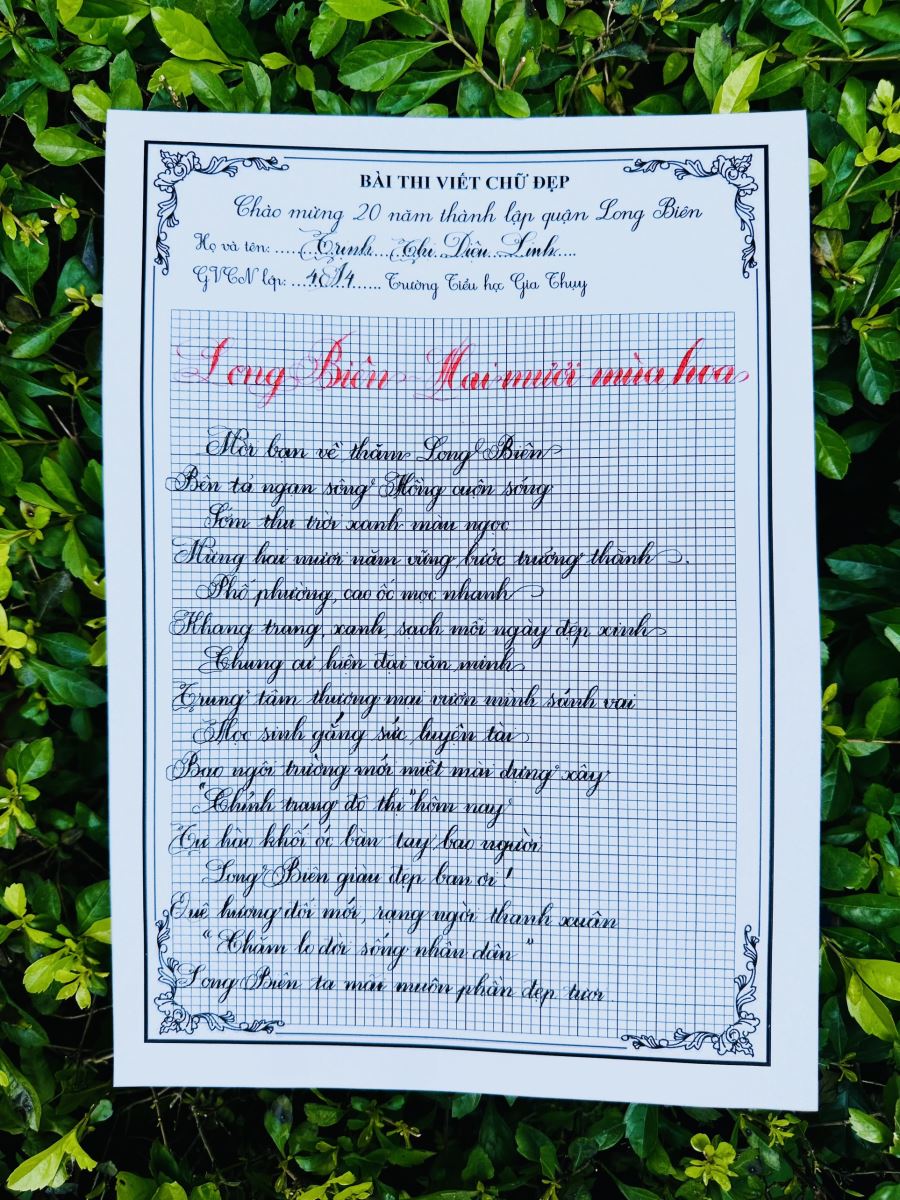 BÀI THI VIẾT CHỮ ĐẸP
Chào mừng 20 năm thành lập quận Long Biên
Họ và tên: ..... Trịnh Thị Diệu Linh .....
GVCN lớp: ... 4A4 ...... Trường Tiểu học Gia Thụy
Long Biên Hai mươi mùa hoa
Mời bạn về thăm Long Biên
Bên tả ngạn sông Hồng cuộn sóng
Sớm thu trời xanh màu ngọc
Mừng hai mươi năm vững bước trưởng thành.
Phố phường, cao ốc mọc nhanh
Khang trang, xanh, sạch mỗi ngày đẹp xinh
Chung cư hiện đại văn minh
Trung tâm thương mại vươn mình sánh vai
Học sinh gắng sức luyện tài
Bao ngôi trường mới miệt mài dựng xây
"Chỉnh trang đô thị" hôm nay
Tự hào khối óc bàn tay bao người
Long Biên giàu đẹp bạn ơi!
Quê hương đổi mới, rạng ngời thanh xuân
"Chăm lo đời sống nhân dân"
Long Biên ta mãi muôn phần đẹp tươi